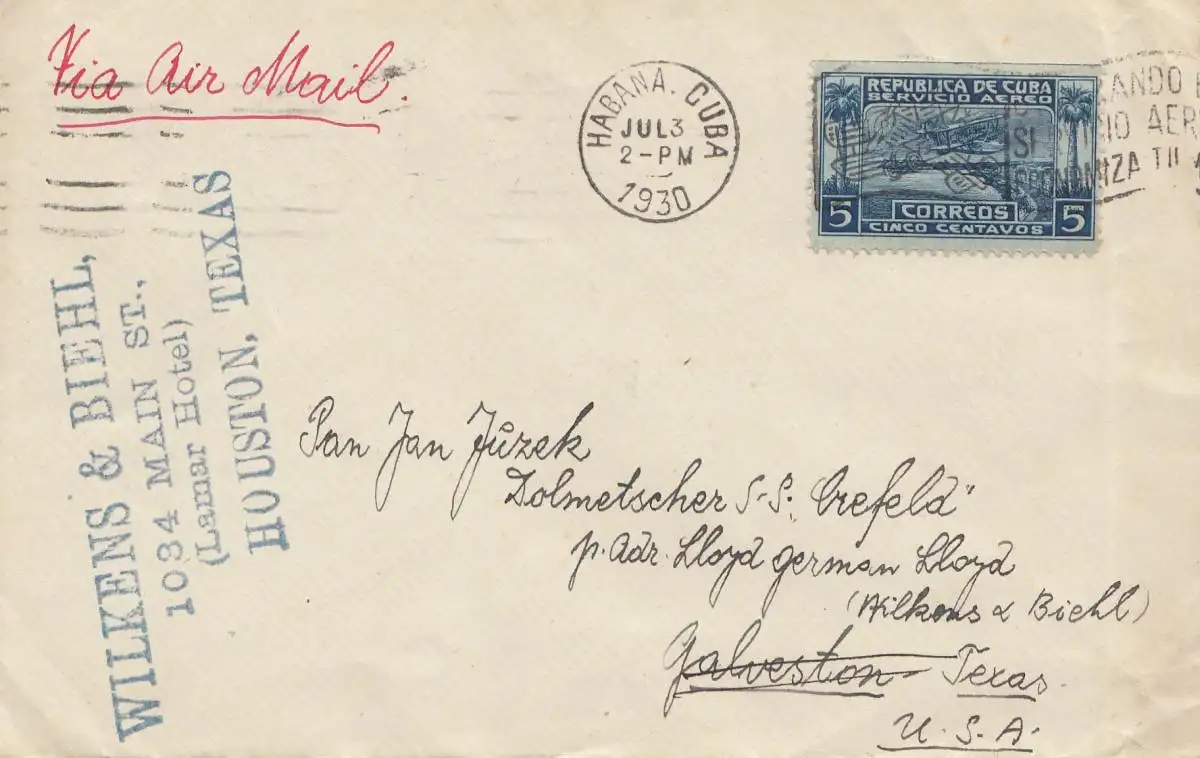 Via Air Mail.
HABANA. CUBA
JUL 3
2-PM
1930
REPUBLICA DE CUBA
SERVICIO AEREO
5 CORREOS 5
CINCO CENTAVOS
SI
AER
WILKENS & BIEHL,
1034 MAIN ST.,
(Lamar Hotel)
HOUSTON, TEXAS
Pan Jan Jůzek
Dolmetscher S.S. „Crefeld“
p. Adr. Lloyd german Lloyd
(Wilkens & Biehl)
Galveston Texas.
U.S.A.